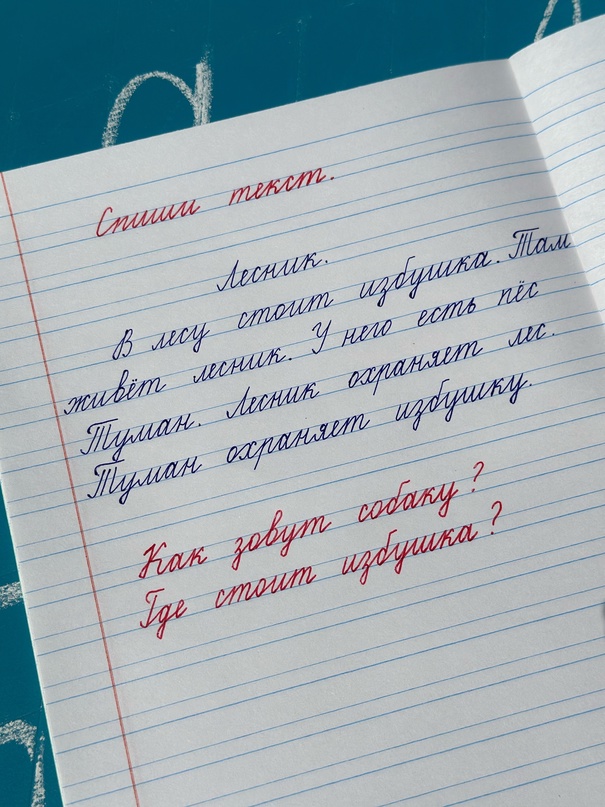 Спиши текст.
Лесник.
В лесу стоит избушка. Там
живёт лесник. У него есть пёс
Туман. Лесник охраняет лес.
Туман охраняет избушку.
Как зовут собаку?
Где стоит избушка?